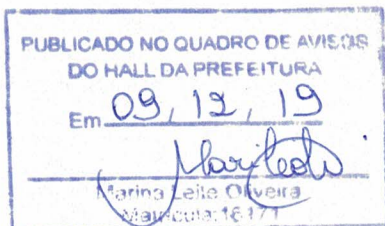 PUBLICADO NO QUADRO DE AVISOS
DO HALL DA PREFEITURA
Em 09, 12, 19
Marina Leite Oliveira
Matrícula: 16171